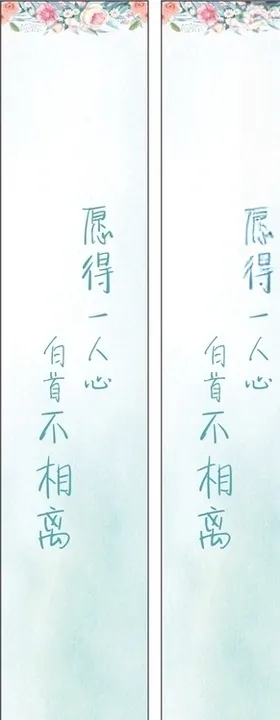 愿得一人心
白首不相离
愿得一人心
白首不相离